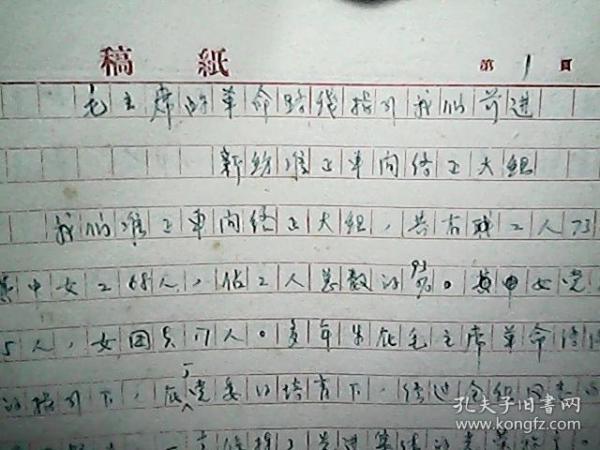 稿 紙
第 1 頁
毛主席的革命路线指引我们前进
新纺准备车间络工大组
我们准备车间络工大组,共有职工人73
其中女工68人,佔工人总数的93%。其中女党
5人,女团员17人。多年来在毛主席革命路线
的指引下,在厂党委的培育下,经过全组同志的
孔夫子旧书网
www.kongfz.com